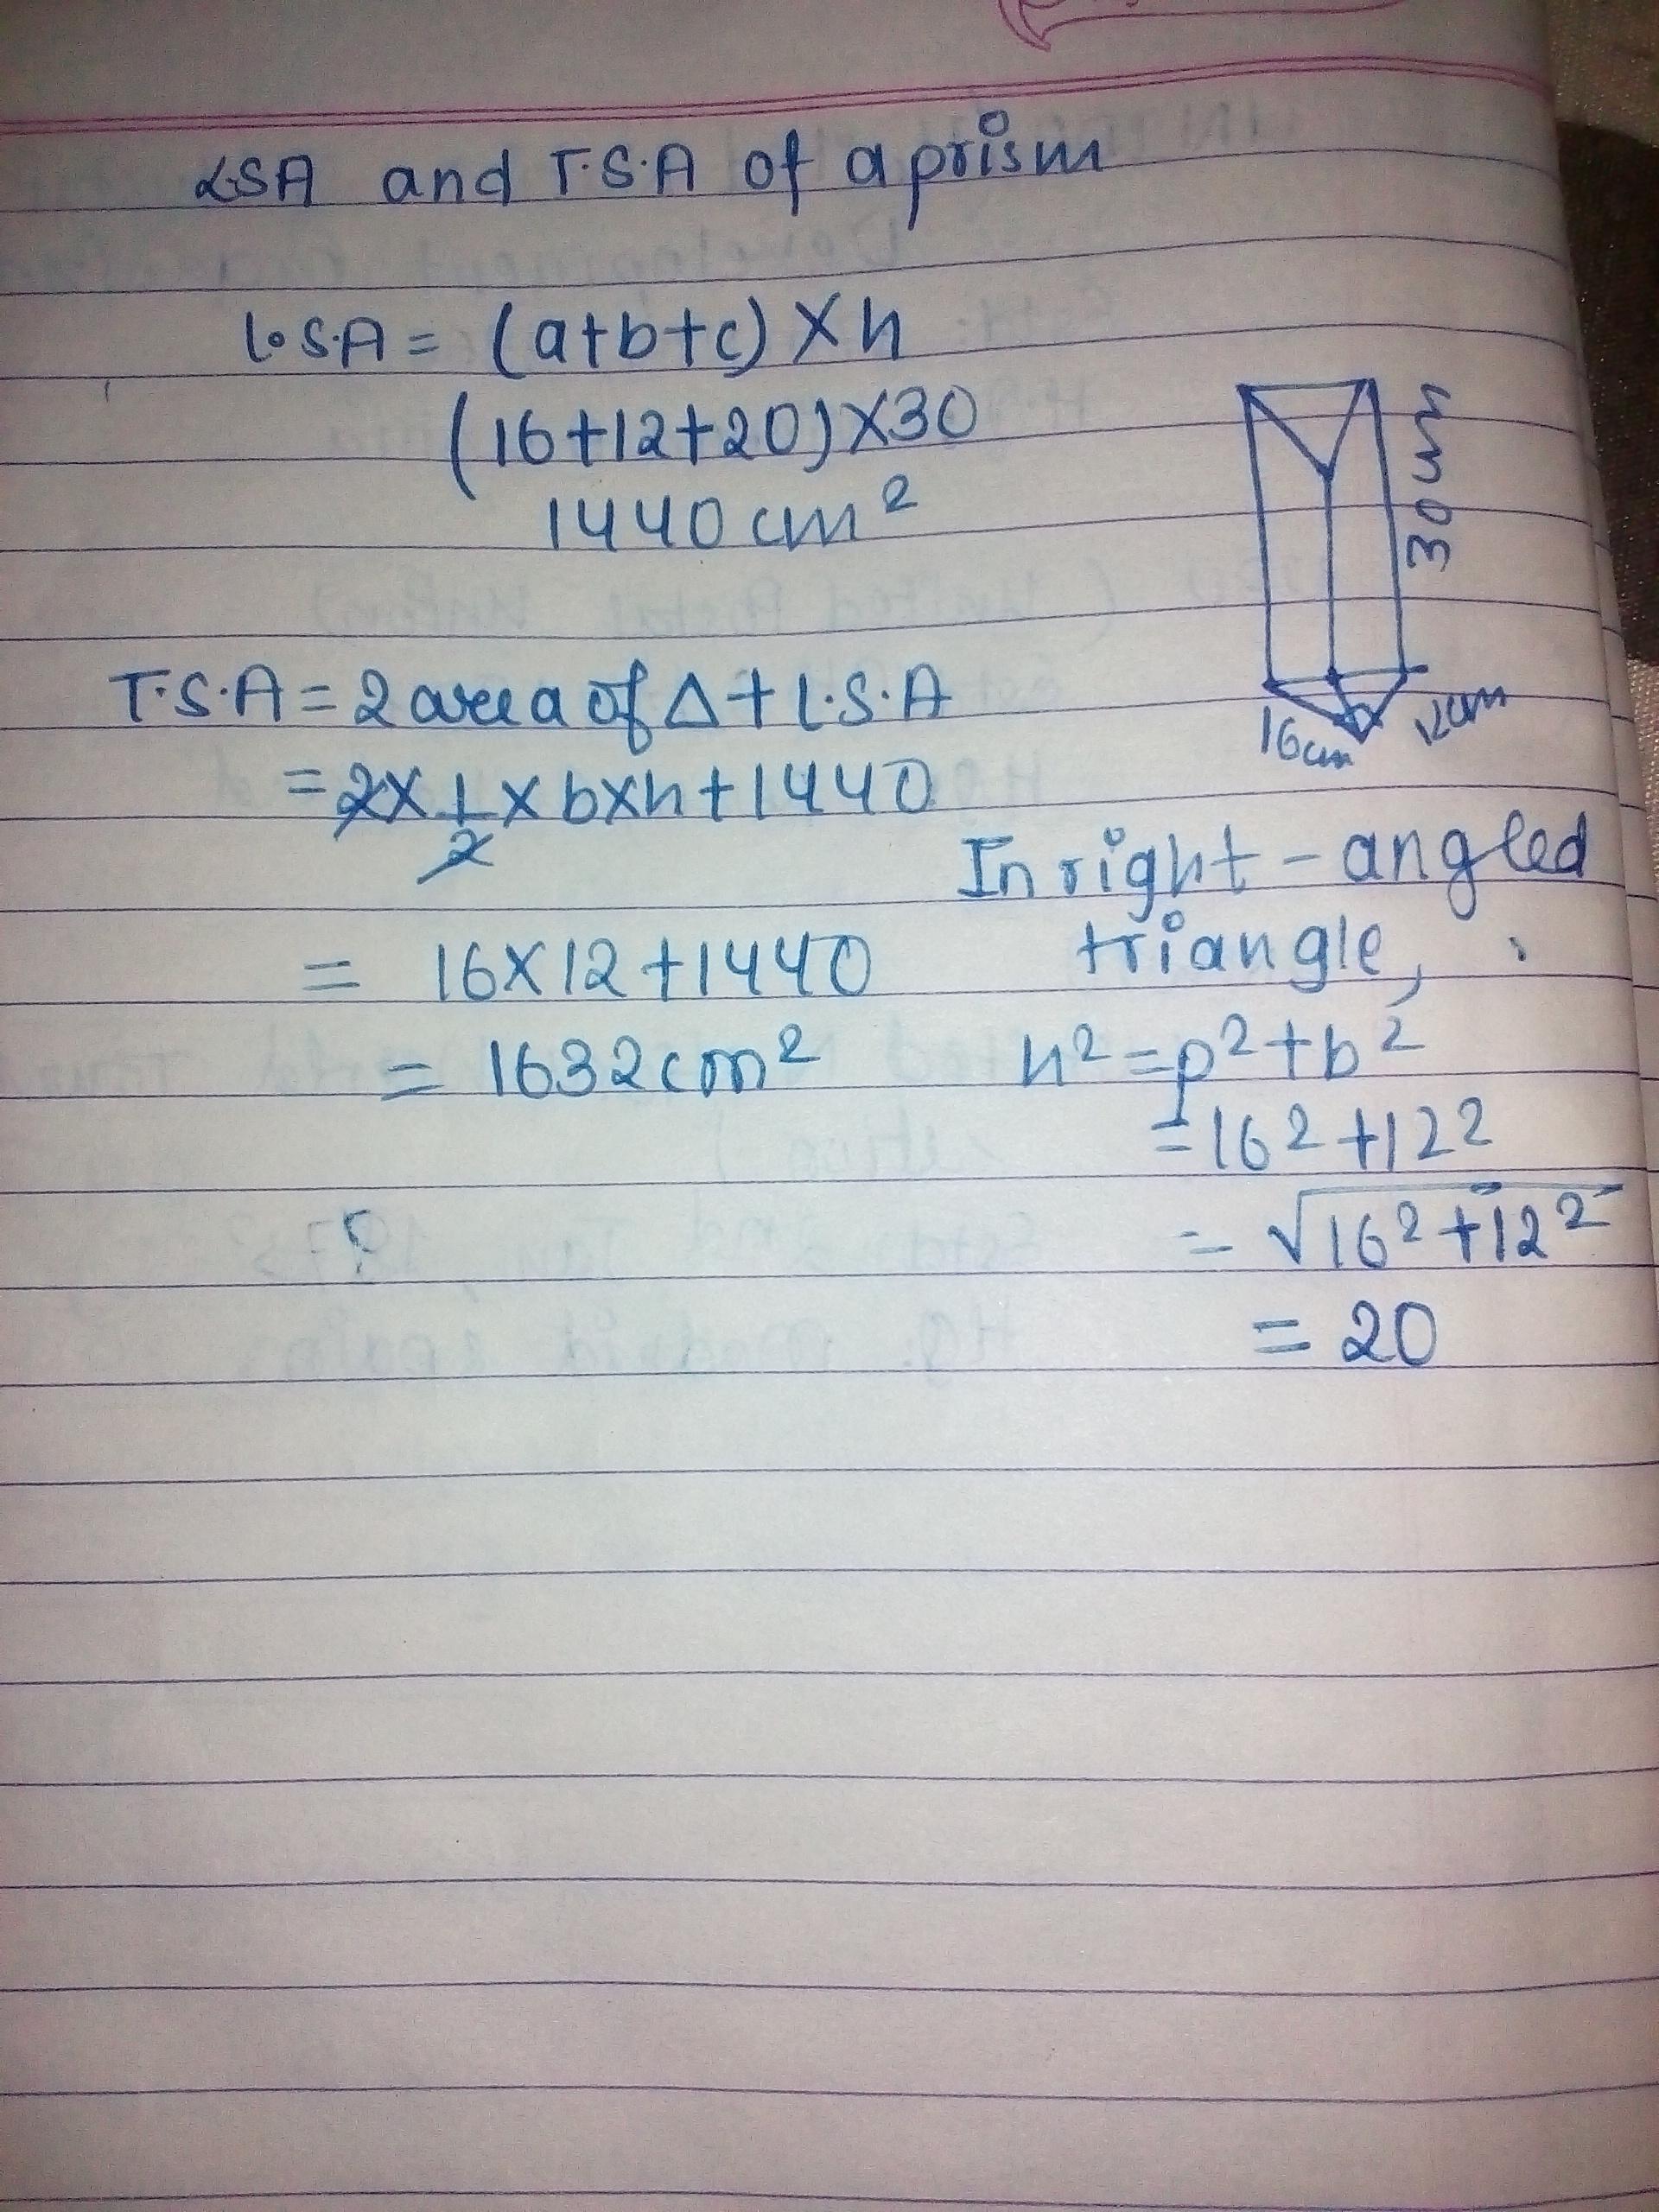 LSA and T.S.A of a prism
L.S.A = (a+b+c) × h
(16+12+20) × 30
1440 cm²
30 cm
16 cm
12 cm
T.S.A = 2 area of Δ + L.S.A
= 2 × 1/2 × b × h + 1440
= 16 × 12 + 1440
= 1632 cm²
In right-angled
triangle,
h² = p² + b²
= 16² + 12²
= √16² + 12²
= 20